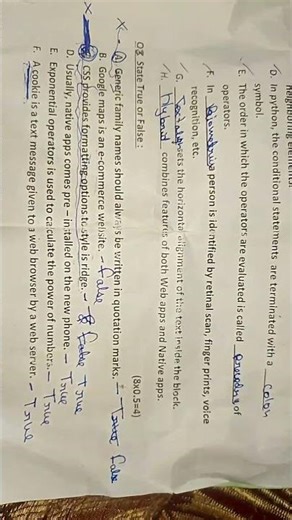 D. In python, the conditional statements are terminated with a Colon
symbol.
E. The order in which the operators are evaluated is called of
operators.
F. In Biometric person is identified by retinal scan, finger prints, voice
recognition, etc.
G. Text align sets the horizontal alignment of the text inside the block.
H. Hybrid combines features of both Web apps and Native apps.
Q3 State True or False : (8x0.5=4)
A. Generic family names should always be written in quotation marks. - True False
B. Google maps is an e-commerce website. - False
C. CSS provides formatting options to style is ridge. - False True
D. Usually, native apps comes pre – installed on the new phone. - True
E. Exponential operators is used to calculate the power of numbers. - True
F. A cookie is a text message given to a web browser by a web server. - True